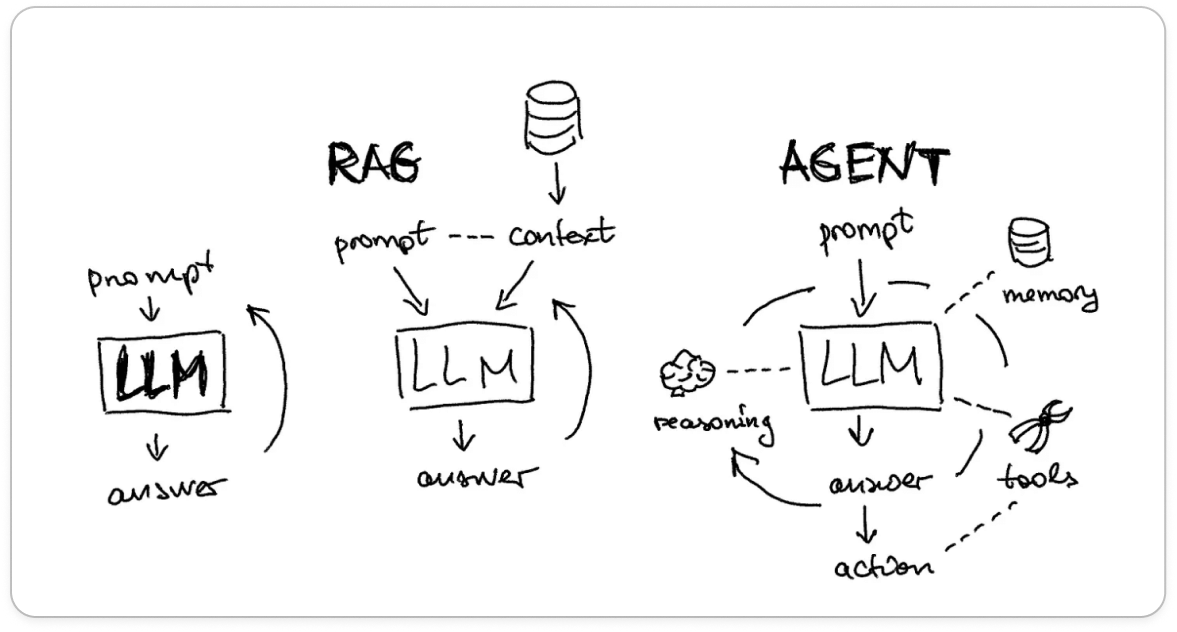 prompt
LLM
answer
RAG
prompt --- context
LLM
answer
AGENT
prompt
memory
LLM
reasoning
tools
answer
action